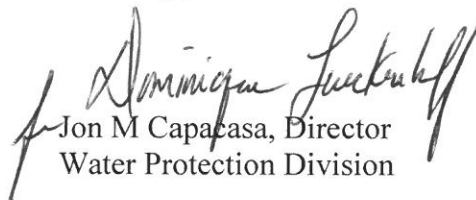 for Dominique Lueckenhoff
Jon M Capacasa, Director
Water Protection Division